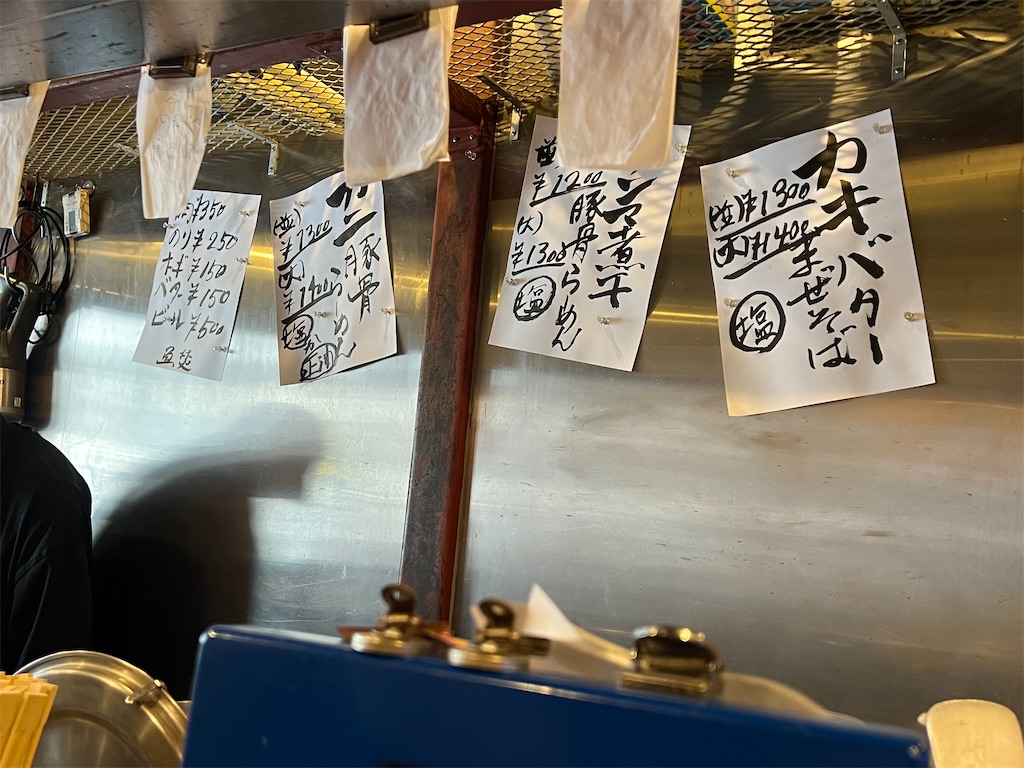 ¥350
のり ¥250
ネギ ¥150
バター ¥150
ビール ¥500
カニ
豚骨
らーめん
(並)¥1300
(大)¥1400
塩
煮干
豚骨らーめん
¥1200
(大)
¥1300
塩
カキバター
まぜそば
(並)¥1300
(大)¥1400
塩